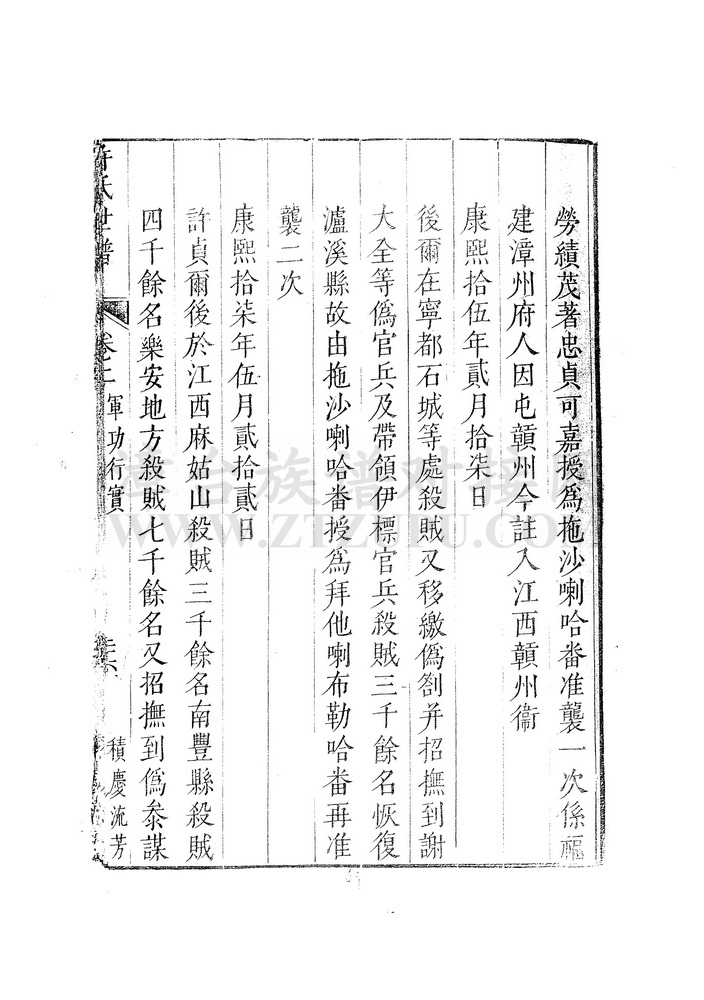 勞績茂著忠貞可嘉授爲拖沙喇哈畨准襲一次係福
建漳州府人因屯贛州今註入江西贛州衞
康熙拾伍年貳月拾柒日
後爾在寧都石城等處殺賊又移繳僞劄并招撫到謝
大全等僞官兵及帶領伊標官兵殺賊三千餘名恢復
瀘溪縣故由拖沙喇哈畨授爲拜他喇布勒哈畨再准
襲二次
康熙拾柒年伍月貳拾貳日
許貞爾後於江西麻姑山殺賊三千餘名南豐縣殺賊
四千餘名樂安地方殺賊七千餘名又招撫到僞叅謀
許氏世譜 軍功行實 積慶流芳
WWW.ZTZUPU.COM